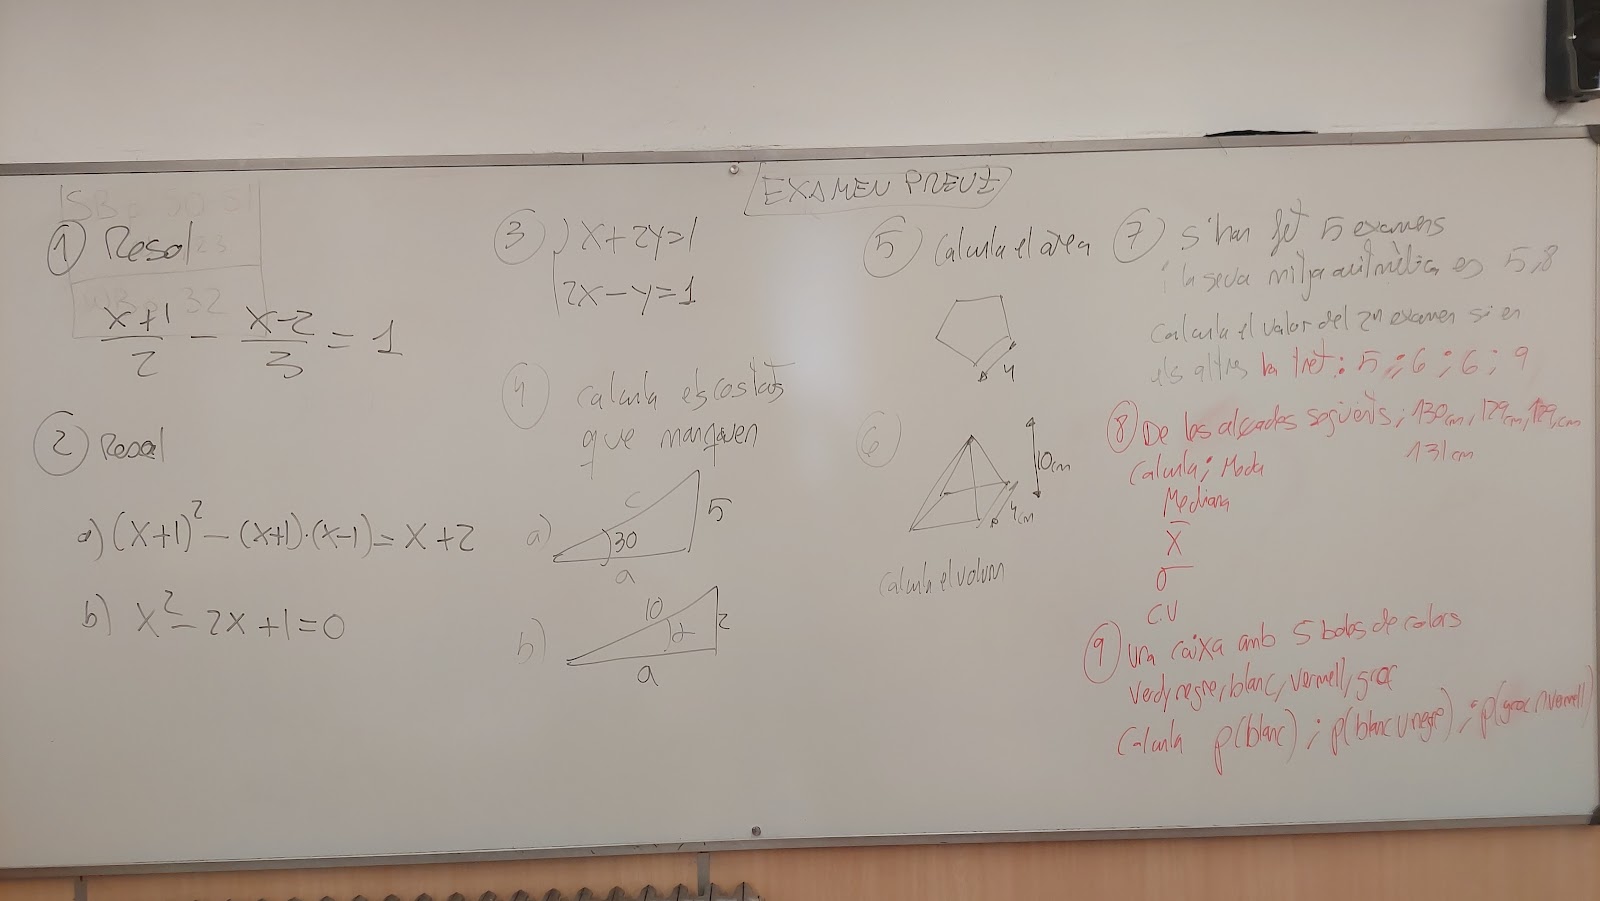 EXAMEN PREVI
SB p 50 51
① Resol
23
WB p 32
x+1/2 - x-2/3 = 1
② Resol
a) (x+1)² - (x+1)·(x-1) = x+2
b) x² - 2x + 1 = 0
③ x+2y=1
2x-y=1
④ calcula els costats
que manquen
a) c 5
30
a
b) 10 2
α
a
⑤ Calcula el àrea
4
⑥
10cm
4cm
Calcula el volum
⑦ S'han fet 5 examens
i la seva mitja aritmètica es 5,8
Calcula el valor del 2n examen si en
els altres ha tret: 5 ; 6 ; 6 ; 9
⑧ De les alçades següents; 130cm, 129cm, 129cm
131cm
Calcula; Moda
Mediana
x̄
σ
C.V
⑨ Una caixa amb 5 boles de colors
Verd, negre, blanc, vermell, groc
Calcula p(blanc) ; p(blanc ∪ negre) ; p(groc ∩ vermell)